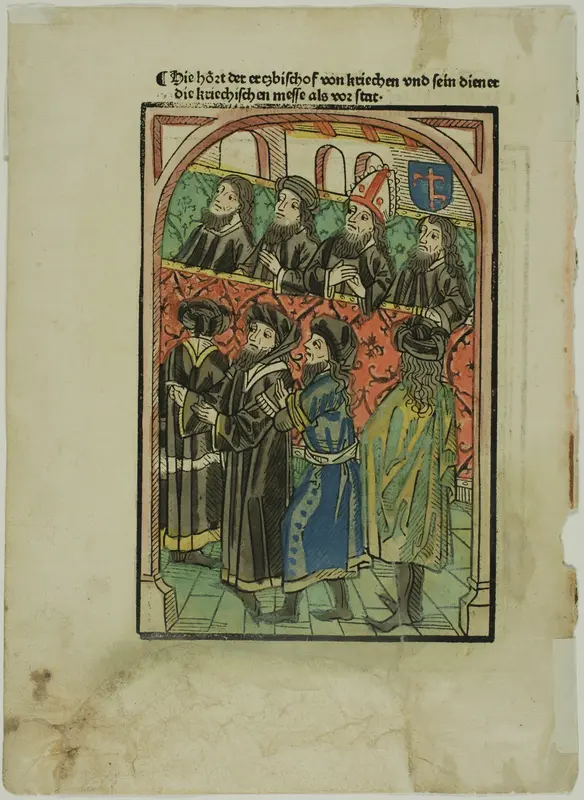 ¶ Hie hört der ertzbischof von kriechen vnd sein diener
die kriechischen messe als vor stat.